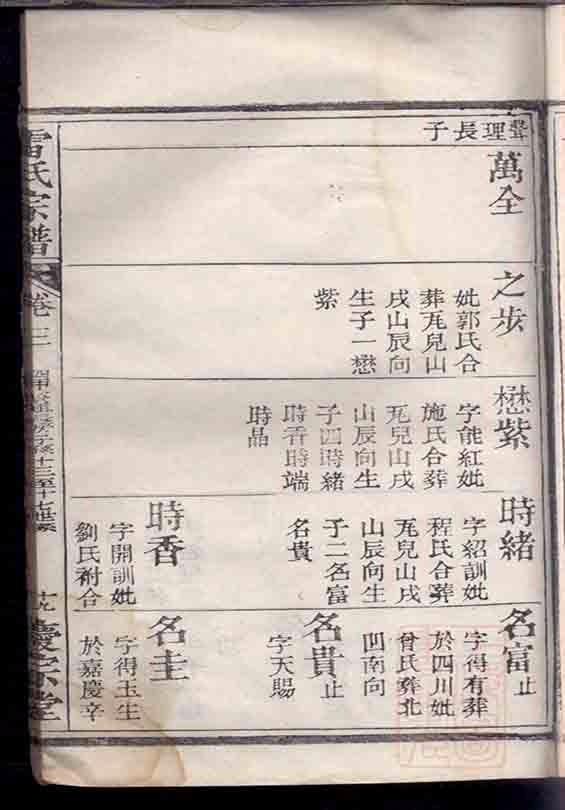 聲理長子
萬全
之步
妣郭氏合
葬瓦兒山
戌山辰向
生子一懋
紫
懋紫
字能紅妣
施氏合葬
瓦兒山戌
山辰向生
子四時緒
時香時端
時品
時緒
字紹訓妣
程氏合葬
瓦兒山戌
山辰向生
子二名富
名貴
時香
字開訓妣
劉氏祔合
名富止
字得有葬
於四川妣
曾氏葬北
凹南向
名貴止
字天賜
名圭
字得玉生
於嘉慶辛
雷氏宗譜
卷三
十九
慶宗堂